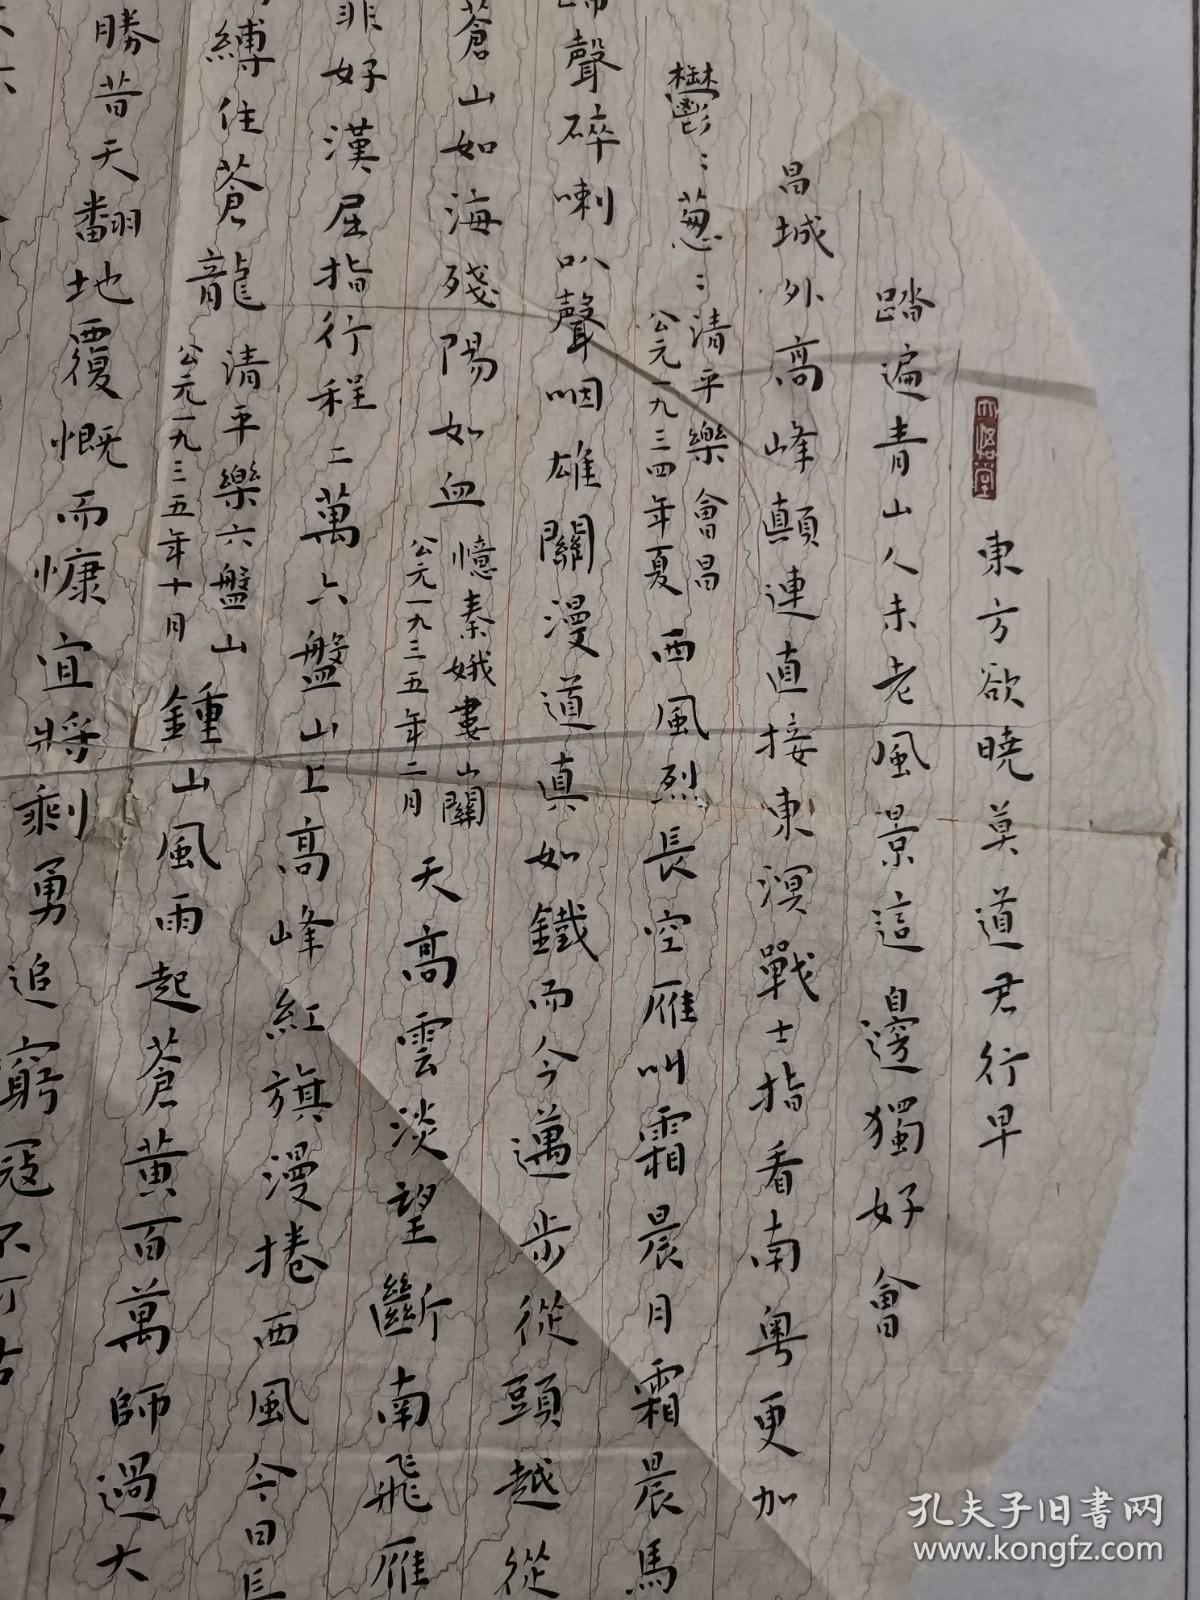 東方欲曉莫道君行早
踏遍青山人未老風景這邊獨好會
昌城外高峰顛連直接東溟戰士指看南粵更加
鬱〻葱〻清平樂會昌
公元一九三四年夏
西風烈長空雁叫霜晨月霜晨馬
蹄聲碎喇叭聲咽雄關漫道真如鐵而今邁步從頭越從
蒼山如海殘陽如血憶秦娥婁山關
公元一九三五年二月
天高雲淡望斷南飛雁
非好漢屈指行程二萬六盤山上高峰紅旗漫捲西風今日長
縛住蒼龍清平樂六盤山
公元一九三五年十月
鍾山風雨起蒼黃百萬師過大
勝昔天翻地覆慨而慷宜將剩勇追窮寇不可沽名
孔夫子旧书网
www.kongfz.com